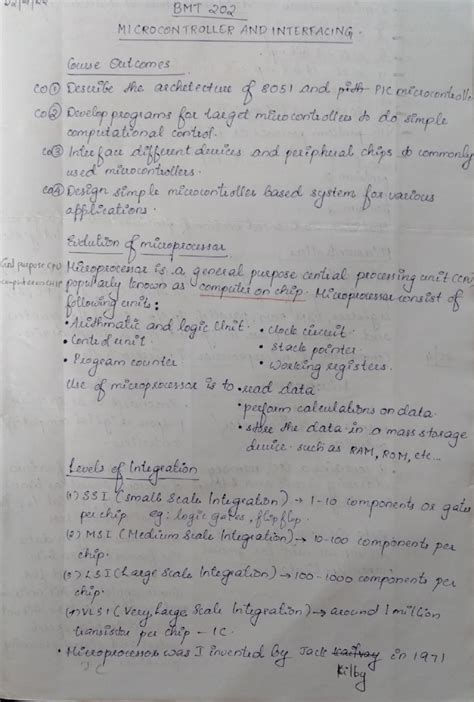 BMT 202
MICROCONTROLLER AND INTERFACING.
Course Outcomes
CO① Describe the archetecture of 8051 and PIC microcontroller
CO② Develop programs for target microcontrollers to do simple
computational control.
CO③ Interface different devices and peripheral chips to commonly
used microcontrollers.
CO④ Design simple microcontroller based system for various
applications.
Evolution of microprocessor
purpose CPU Microprocessor is a general purpose central processing unit (CPU)
computer on chip popularly known as computer on chip. Microprocessor consist of
following units:
• Arithmatic and logic Unit. • Clock circuit.
• Control unit. • Stack pointer
• Program counter • Working registers.
Use of microprocessor is to • read data.
• perform calculations on data.
• store the data in a mass storage
device such as RAM, ROM, etc...
Levels of Integration
(1) SSI (Small Scale Integration) → 1-10 components or gates
per chip eg: logic gates, flipflop.
(2) MSI (Medium Scale Integration) → 10-100 components per
chip.
(3) LSI (Large Scale Integration) → 100-1000 components per
chip
(4) VLSI (Very Large Scale Integration) → around 1 million
transistor per chip - IC.
• Microprocessor was I invented by Jack in 1971
IC Kilby